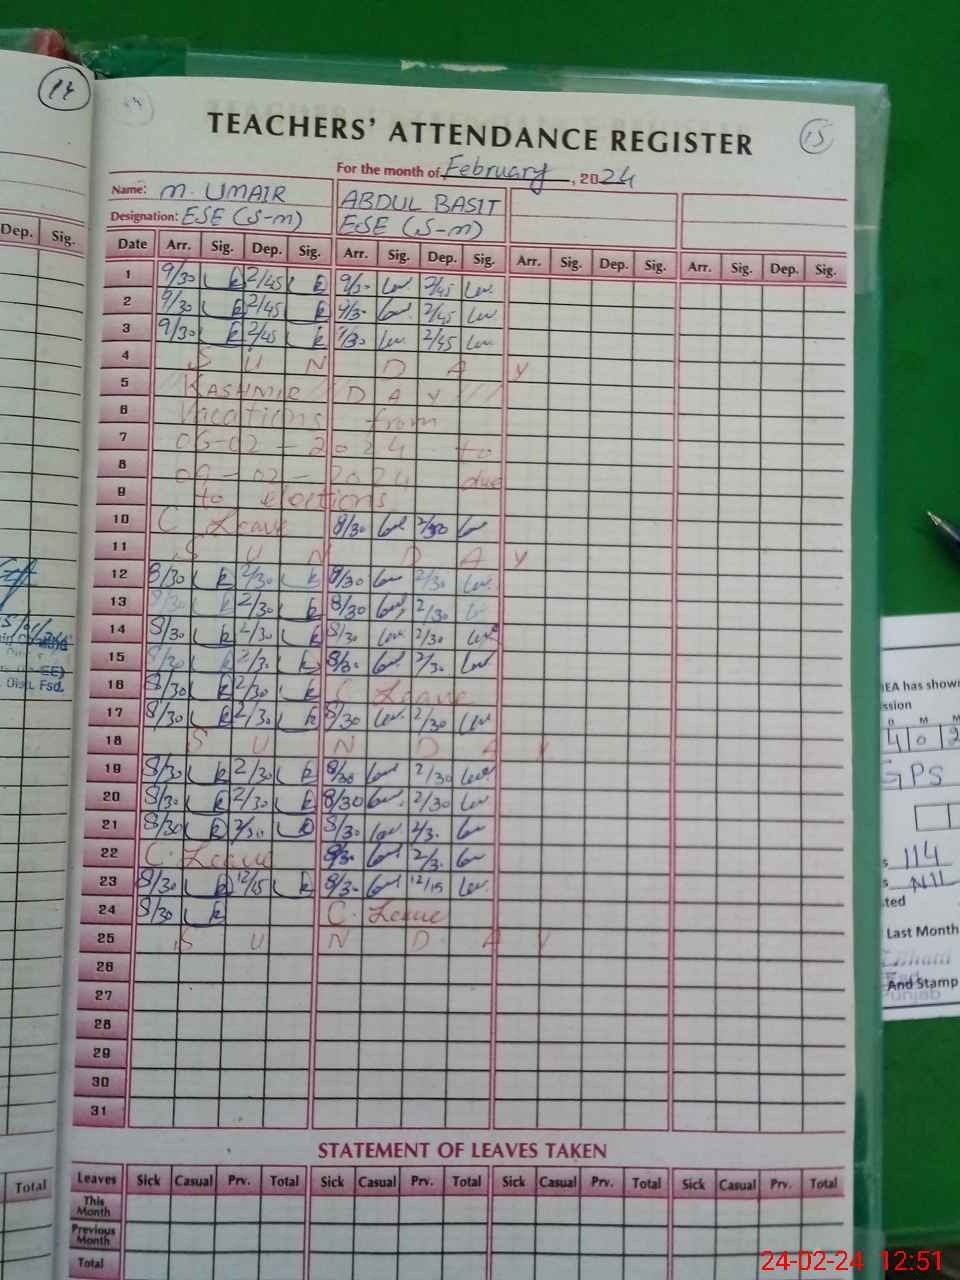 14
15
TEACHERS' ATTENDANCE REGISTER
For the month of February, 2024
Name: M. UMAIR ABDUL BASIT
Designation: ESE (S-m) ESE (S-m)
Dep. Sig.
Date Arr. Sig. Dep. Sig. Arr. Sig. Dep. Sig. Arr. Sig. Dep. Sig. Arr. Sig. Dep. Sig.
1 9/30 2/45 9/30 2/45
2 9/30 2/45 9/30 2/45
3 9/30 2/45 9/30 2/45
4 S U N D A Y
5 KASHMIR DAY
6 Vacations from
7 06-02-2024 to
8 09-02-2024 due
9 to elections
10 C. Leave 8/30 2/30
11 S U N D A Y
12 8/30 2/30 8/30 2/30
13 8/30 2/30 8/30 2/30
14 8/30 2/30 8/30 2/30
15 8/30 2/30 8/30 2/30
16 8/30 2/30 C. Leave
17 8/30 2/30 8/30 2/30
18 S U N D A Y
19 8/30 2/30 8/30 2/30
20 8/30 2/30 8/30 2/30
21 8/30 2/30 8/30 2/30
22 C. Leave 8/30 2/30
23 8/30 12/15 8/30 12/15
24 8/30 C. Leave
25 S U N D A Y
26
27
28
29
30
31
STATEMENT OF LEAVES TAKEN
Leaves Sick Casual Prv. Total Sick Casual Prv. Total Sick Casual Prv. Total Sick Casual Prv. Total
This Month
Previous Month
Total
Total
Distt. Fsd.
EA has shown
ssion
M M
4 0 2
GPS
114
Nil
ted
Last Month
And Stamp
Punjab
24-02-24 12:51